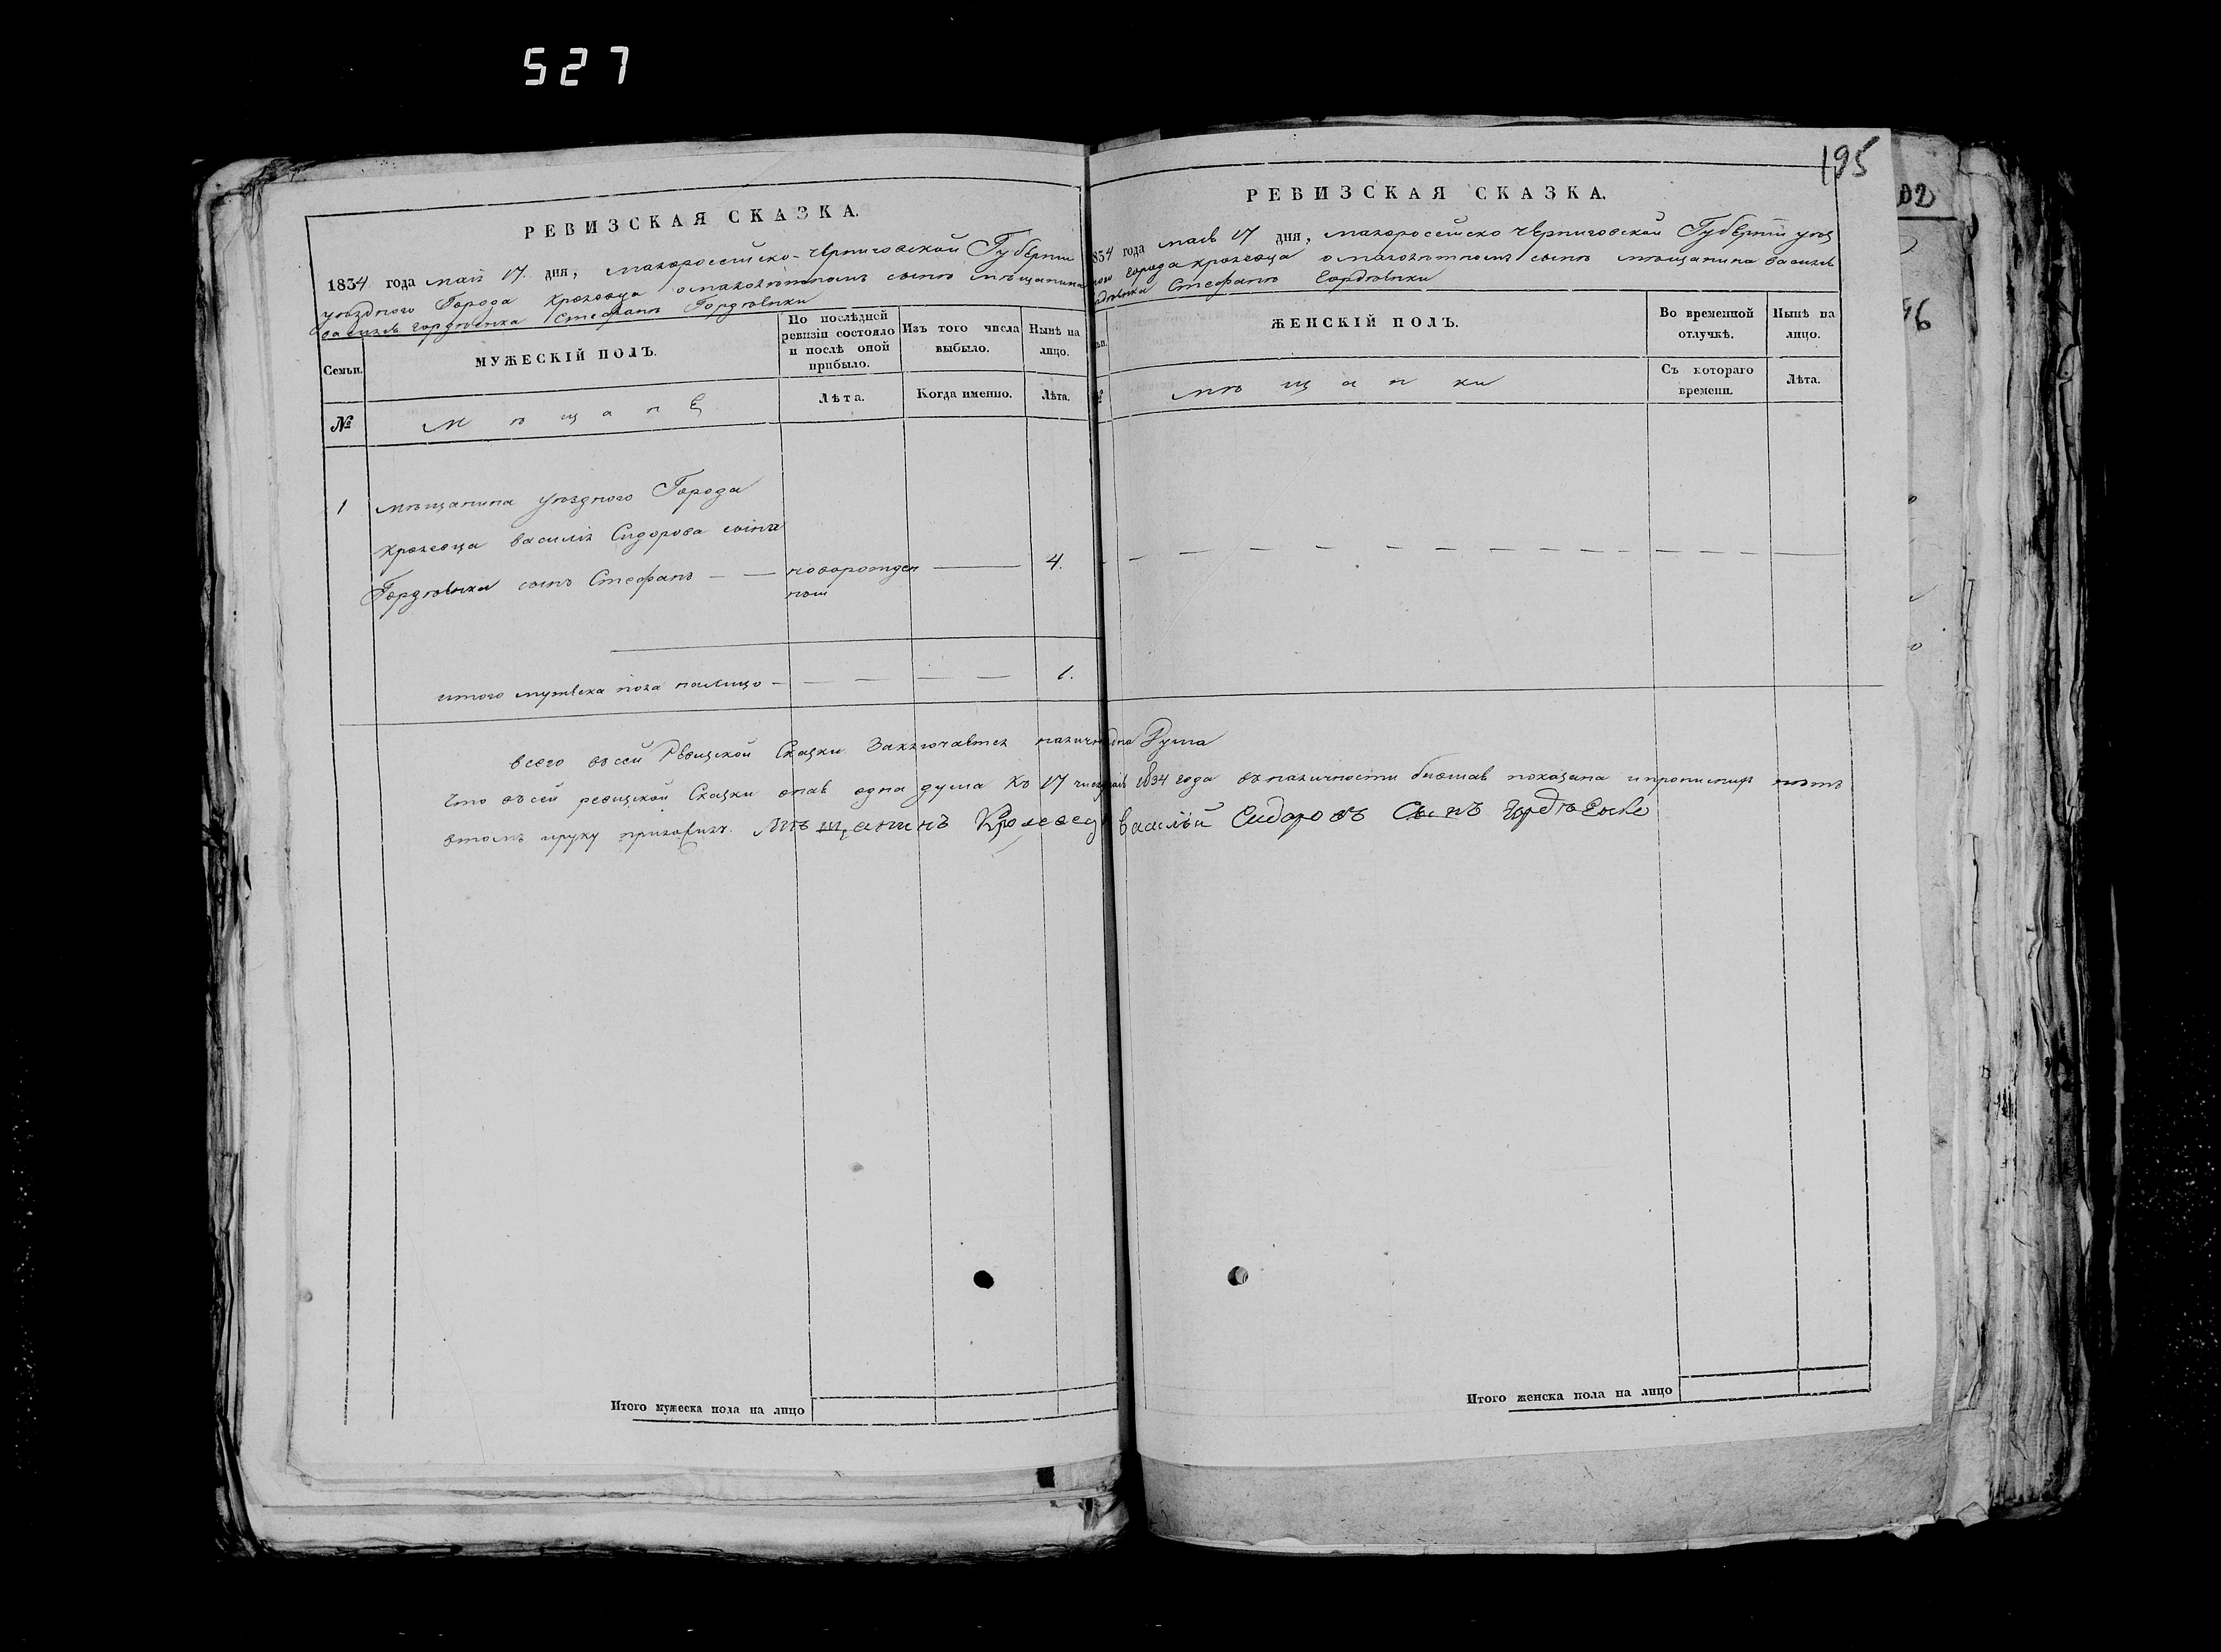 527
195
102
РЕВИЗСКАЯ СКАЗКА.
1834 года маія 17 дня, малороссійско-черниговской Губерніи
уѣздного Города Кролевца о малолѣтномъ сынѣ мѣщанина
василя гордѣенка Стефанѣ Гордѣенки
Семьи.
МУЖЕСКІЙ ПОЛЪ.
По послѣдней ревизіи состояло и послѣ оной прибыло.
Изъ того числа выбыло.
Нынѣ на лицо.
№
мѣщане
Лѣта.
Когда именно.
Лѣта.
1 мѣщанина уѣздного Города
Кролевца василія Сидорова сына
Гордѣенки сынъ Стефанъ — — новорожден — 4.
ной
итого мужеска пола налицо — — — — 1.
РЕВИЗСКАЯ СКАЗКА.
834 года маія 17 дня, малороссійско черниговской Губерніи уѣз
города Кролевца о малолѣтномъ сынѣ мѣщанина василя
Стефанѣ Гордѣенки
ЖЕНСКІЙ ПОЛЪ.
Во временной отлучкѣ.
Нынѣ на лицо.
№
мѣщанки
Съ котораго времени.
Лѣта.
всего въсей Ревизской Сказки Заключается налично одна Душа
Что въсей ревизской Сказки онав одна душа Къ 17 числу маія 1834 года въналичности показана
втомъ ируку приложилъ. Мѣщанинъ Кролевец василій Сидоровъ Сынъ
Итого мужеска пола на лицо
Итого женска пола на лицо